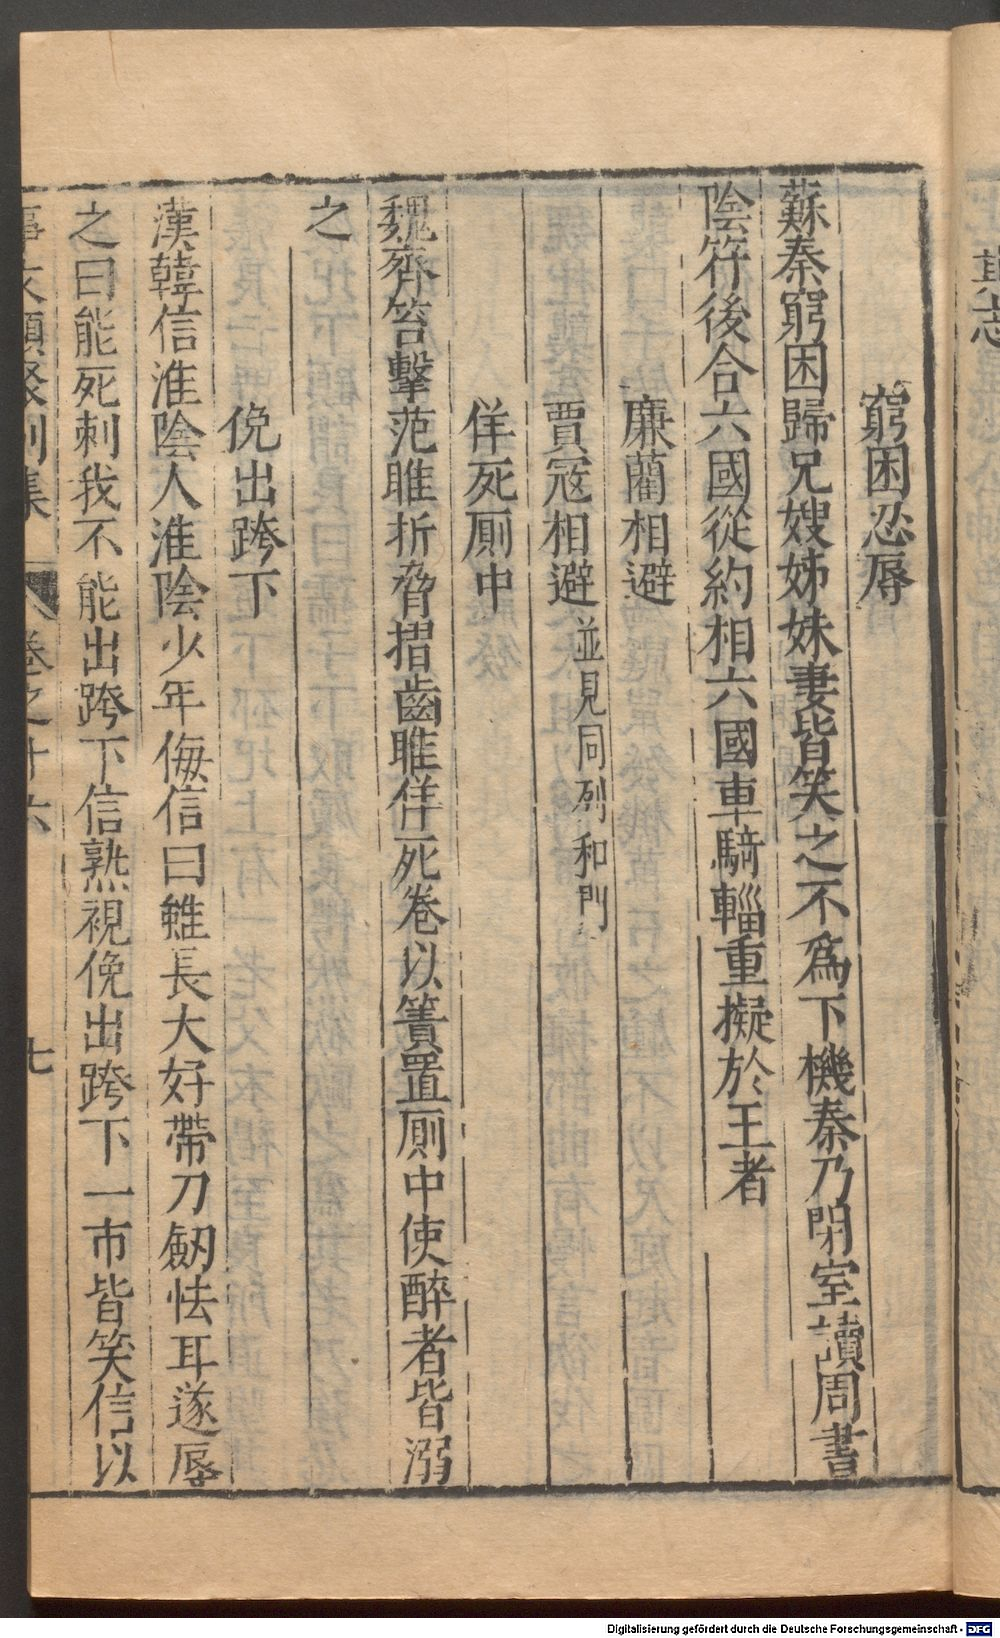 窮困忍辱
蘇秦窮困歸兄嫂姊妹妻皆笑之不為下機秦乃閉室讀周書
陰符後合六國從約相六國車騎輜重擬於王者
廉藺相避
賈寇相避並見同列和門
佯死厠中
魏齊笞擊范雎折脅摺齒雎佯死卷以簀置厠中使醉者皆溺
之
俛出跨下
漢韓信淮陰人淮陰少年侮信曰雖長大好帶刀劒怯耳遂辱
之曰能死刺我不能出跨下信熟視俛出跨下一市皆笑信以
事文類聚別集 卷之十六 七
Digitalisierung gefördert durch die Deutsche Forschungsgemeinschaft - DFG